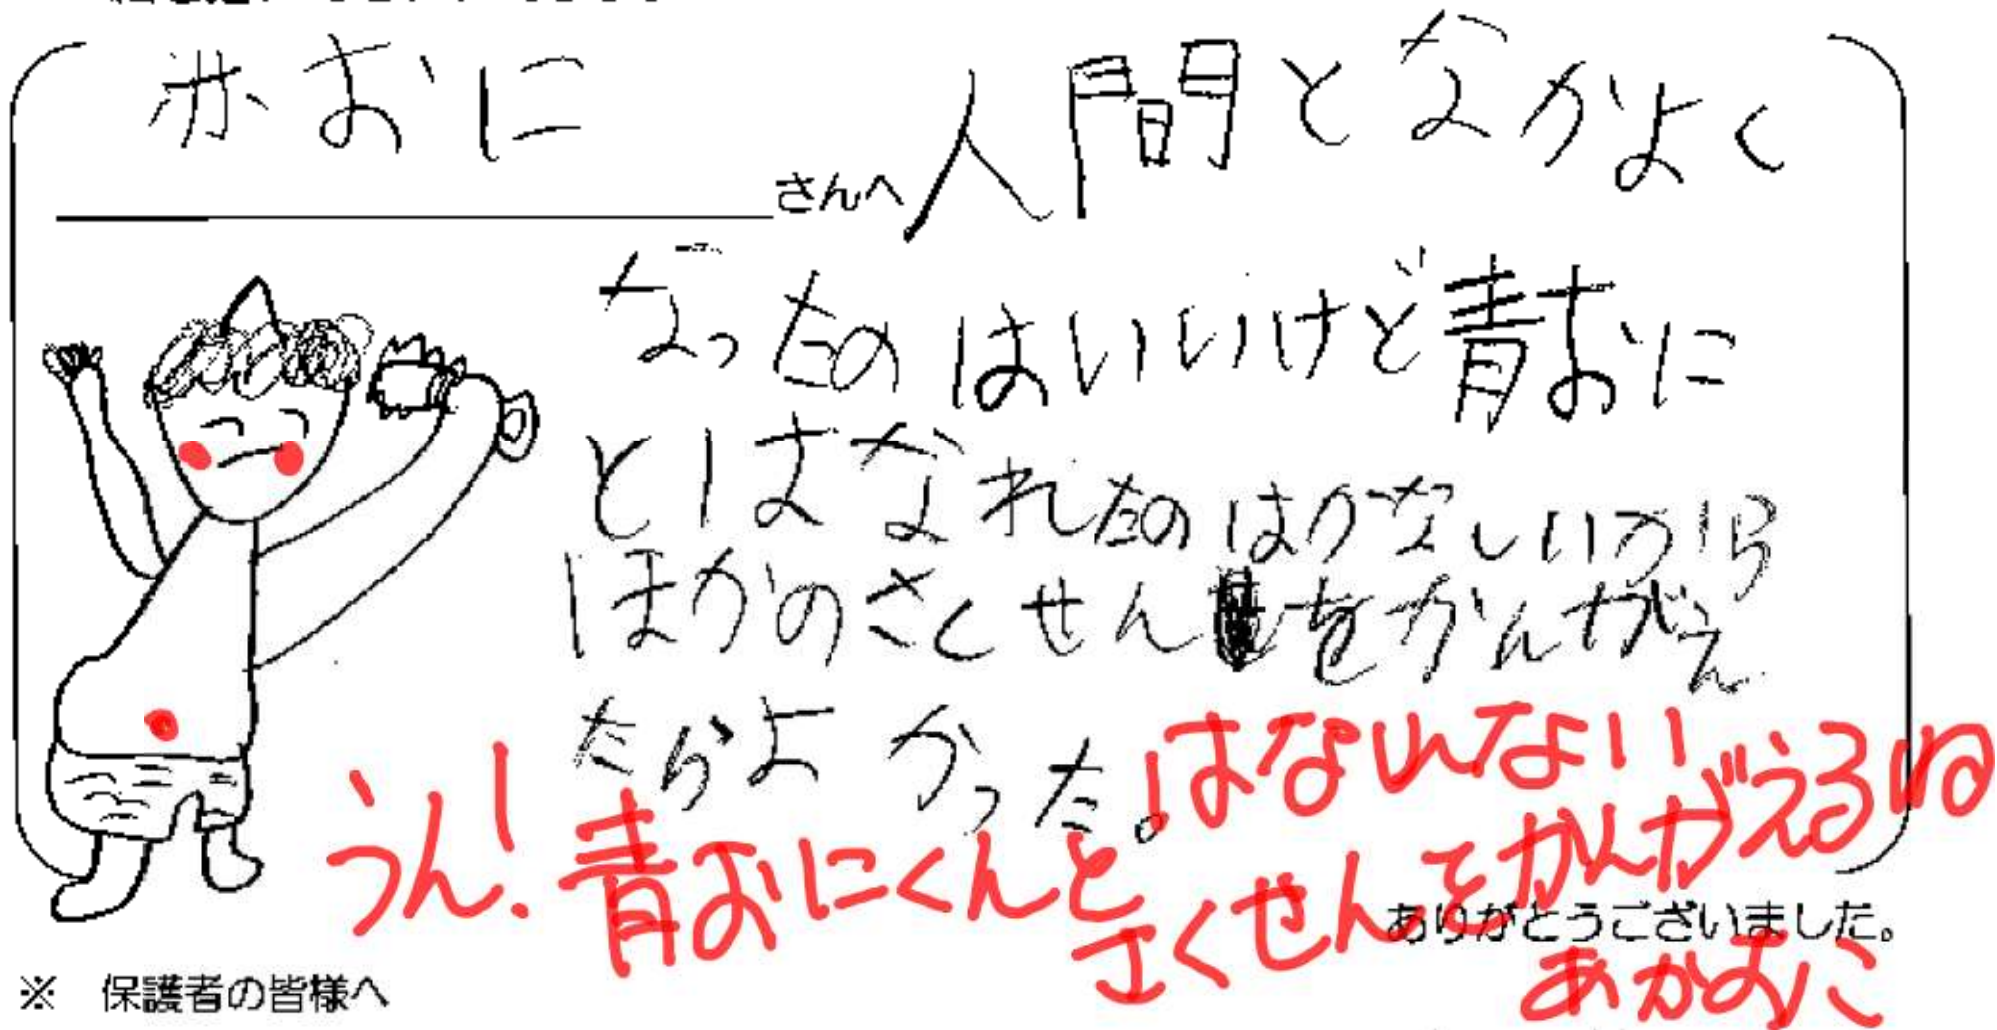 赤おに
さんへ 人間となかよく
なったのはいいけど青おに
とはなれたのはかなしいから
ほかのさくせんをかんがえ
たらよかった。
うん!青おにくんと
はなれない
さくせんをかんがえるね
あかおに
ありがとうございました。
※ 保護者の皆様へ